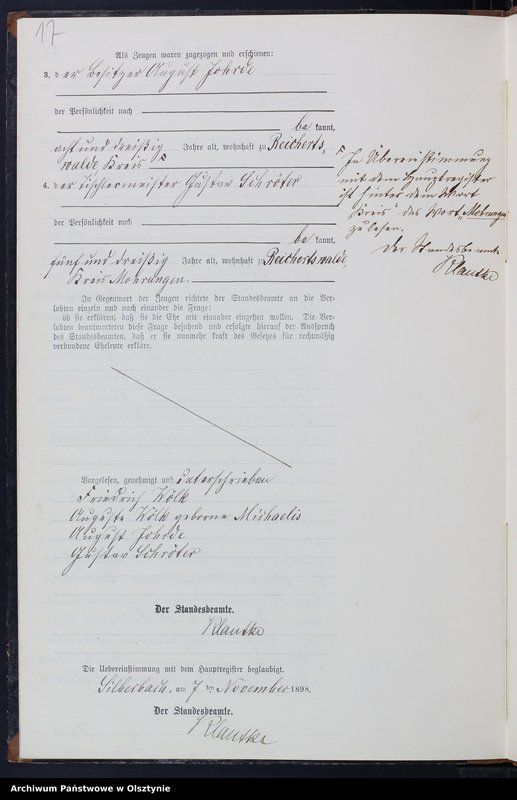 17
Als Zeugen waren zugezogen und erschienen:
3. der Besitzer August Johrde
der Persönlichkeit nach
be kannt,
acht und dreißig Jahre alt, wohnhaft zu Reicherts-
walde, Kreis Γ
4. der Tischlermeister Gustav Schröter
der Persönlichkeit nach
be kannt,
fünf und dreißig Jahre alt, wohnhaft zu Reichertswalde,
Kreis Mohrungen.
Γ In Übereinstimmung
mit dem Hauptregister
ist hinter dem Wort
„Kreis“ das Wort „Mohrungen“
zu lesen.
Der Standesbeamte
Klautke
In Gegenwart der Zeugen richtete der Standesbeamte an die Ver-
lobten einzeln und nach einander die Frage:
ob sie erklären, daß sie die Ehe mit einander eingehen wollen. Die Ver-
lobten beantworteten diese Frage bejahend und erfolgte hierauf der Ausspruch
des Standesbeamten, daß er sie nunmehr kraft des Gesetzes für rechtmäßig
verbundene Eheleute erkläre.
Vorgelesen, genehmigt und unterschrieben
Friedrich Kölk
Auguste Kölk geborne Michaelis
August Johrde
Gustav Schröter
Der Standesbeamte.
Klautke
Die Uebereinstimmung mit dem Hauptregister beglaubigt.
Silberbach, am 7 ten November 1898.
Der Standesbeamte.
Klautke
Archiwum Państwowe w Olsztynie